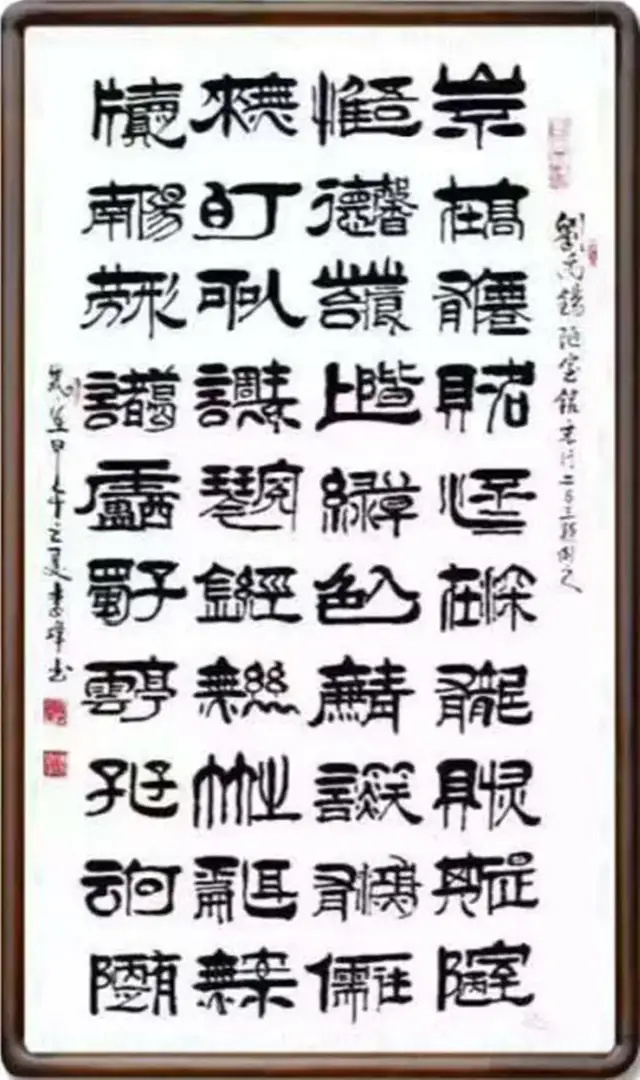 劉禹錫陋室銘
山不在高有仙則名水不在深有龍則靈斯是陋室
惟吾德馨苔痕上階綠草色入簾青談笑有鴻儒往
來無白丁可以調素琴閱金經無絲竹之亂耳無案
牘南陽勞形諸葛廬西蜀子雲亭孔子云何陋有
歲在甲午之夏